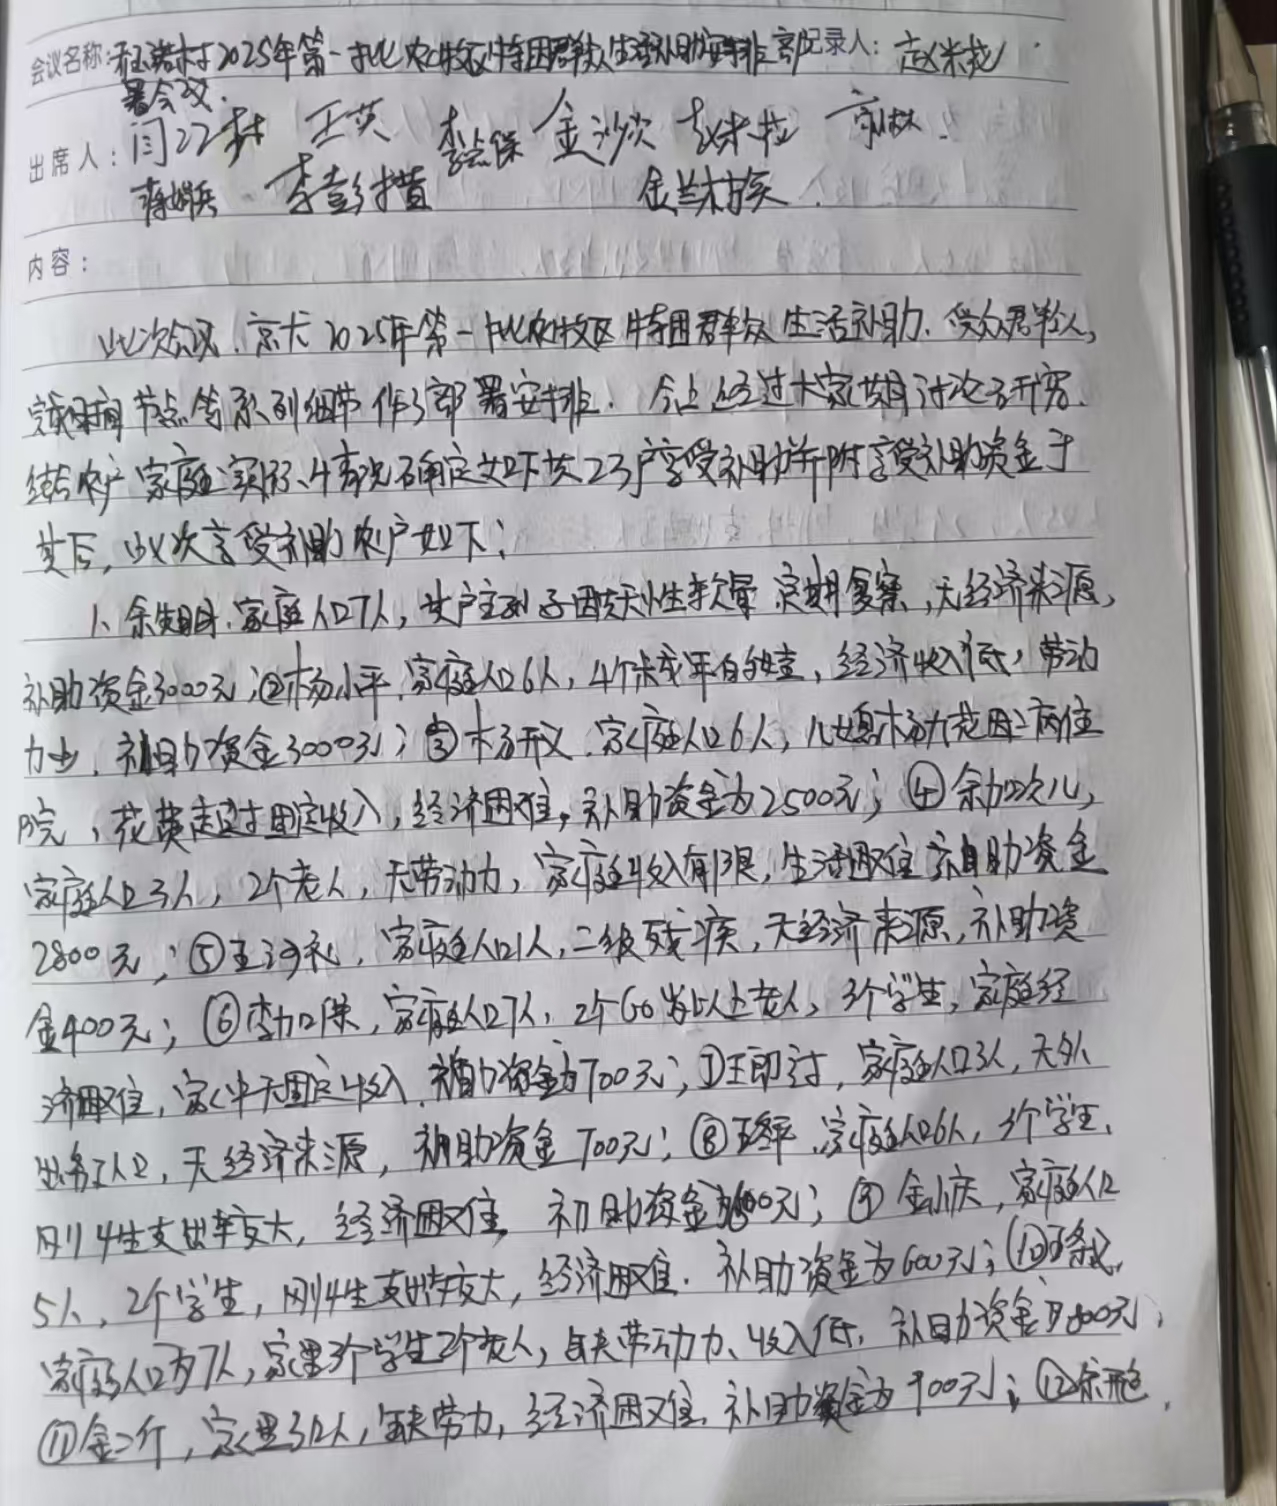 会议名称: 村2025年第一批农牧区特困群众生活补助安排部 记录人: 赵米拉
署会议.
出席人: 王英 金沙次 赵米拉
李彭措
内容:
此次会议, 2025年第一批农牧区特困群众生活补助, 受众群体人,
时间节点等系列细节作了部署安排. 会上经过大家共同讨论研究,
结合农户家庭实际情况确定如下共23户享受补助并附享受补助资金于
其后, 此次享受补助农户如下:
1、余 家庭人口7人, 其户主孙子因 定期复察, 无经济来源,
补助资金3000元; ②杨小平, 家庭人口6人, 4个未成年的娃, 经济收入低, 劳动
力少, 补助资金3000元; ③杨 , 家庭人口6人, 儿媳杨 因 住
院, 花费超过固定收入, 经济困难, 补助资金为2500元; ④余加次儿,
家庭人口3人, 2个老人, 无劳动力, 家庭收入有限, 生活困难 补助资金
2800元; ⑤王 , 家庭人口1人, 二级残疾, 无经济来源, 补助资
金400元; ⑥李加 , 家庭人口7人, 2个60岁以上老人, 3个学生, 家庭经
济困难, 家中无固定收入, 补助资金为700元; ⑦王即 , 家庭人口3人, 无外
出务工人口, 无经济来源, 补助资金700元; ⑧王 , 家庭人口6人, 3个学生,
刚 生支出较大, 经济困难, 补助资金 元; ⑨金小庆, 家庭人口
5人, 2个学生, 刚 生支出较大, 经济困难, 补助资金为600元; ⑩
家庭人口为7人, 家里3个学生2个老人, 缺劳动力、收入低, 补助资金为800元;
⑪金二 , 家里3口人, 缺劳力, 经济困难, 补助资金为900元; ⑫余